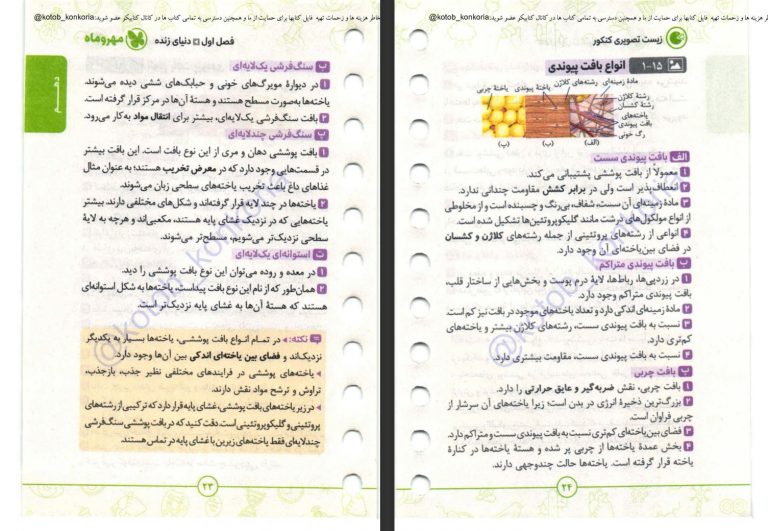 خاطر هزینه ها و زحمات تهیه فایل کتابها برای حمایت از ما و همچنین دسترسی به تمامی کتاب ها در کانال کتابیکر عضو شوید:@kotob_konkoria
زیست تصویری کنکور
۱-۱۵ انواع بافت پیوندی
مادهٔ زمینه‌ای
رشته‌های کلاژن
یاختهٔ پیوندی
یاختهٔ چربی
رشتهٔ کلاژن
رشتهٔ کشسان
یاخته‌های
بافت پیوندی
رگ خونی
(الف)
(ب)
(پ)
الف بافت پیوندی سست
۱ معمولاً از بافت پوششی پشتیبانی می‌کند.
۲ انعطاف‌پذیر است ولی در برابر کشش مقاومت چندانی ندارد.
۳ مادهٔ زمینه‌ای آن سست، شفاف، بی‌رنگ و چسبنده است و از مخلوطی
از انواع مولکول‌های درشت مانند گلیکوپروتئین‌ها تشکیل شده است.
۴ انواعی از رشته‌های پروتئینی از جمله رشته‌های کلاژن و کشسان
در فضای بین‌یاخته‌ای آن وجود دارد.
ب بافت پیوندی متراکم
۱ در زردپی‌ها، رباط‌ها، لایهٔ درم پوست و بخش‌هایی از ساختار قلب،
بافت پیوندی متراکم وجود دارد.
۲ مادهٔ زمینه‌ای اندکی دارد و تعداد یاخته‌های موجود در بافت نیز کم است.
۳ نسبت به بافت پیوندی سست، رشته‌های کلاژن بیشتر و یاخته‌های
کم‌تری دارد.
۴ نسبت به بافت پیوندی سست، مقاومت بیشتری دارد.
پ بافت چربی
۱ بافت چربی، نقش ضربه‌گیر و عایق حرارتی را دارد.
۲ بزرگ‌ترین ذخیرهٔ انرژی در بدن است؛ زیرا یاخته‌های آن سرشار از
چربی فراوان است.
۳ فضای بین‌یاخته‌ای کم‌تری نسبت به بافت پیوندی سست و متراکم دارد.
۴ بخش عمدهٔ یاخته‌ها از چربی پر شده و هستهٔ یاخته‌ها در کنارهٔ
یاخته قرار گرفته است. یاخته‌ها حالت چندوجهی دارند.
۲۴
خاطر هزینه ها و زحمات تهیه فایل کتابها برای حمایت از ما و همچنین دسترسی به تمامی کتاب ها در کانال کتابیکر عضو شوید:@kotob_konkoria
فصل اول دنیای زنده
مهروماه
دهم
ب سنگ‌فرشی یک‌لایه‌ای
۱ در دیوارهٔ مویرگ‌های خونی و حبابک‌های ششی دیده می‌شوند.
یاخته‌ها به‌صورت مسطح هستند و هستهٔ آن‌ها در مرکز قرار گرفته است.
۲ بافت سنگ‌فرشی یک‌لایه‌ای، بیشتر برای انتقال مواد به‌کار می‌رود.
پ سنگ‌فرشی چندلایه‌ای
۱ بافت پوششی دهان و مری از این نوع بافت است. این بافت بیشتر
در قسمت‌هایی وجود دارد که در معرض تخریب هستند؛ به عنوان مثال
غذاهای داغ باعث تخریب یاخته‌های سطحی زبان می‌شوند.
۲ یاخته‌ها در چند لایه قرار گرفته‌اند و شکل‌های مختلفی دارند. بیشتر
یاخته‌هایی که در نزدیک غشای پایه هستند، مکعبی‌اند و هرچه به لایهٔ
سطحی نزدیک‌تر می‌شویم، مسطح‌تر می‌شوند.
ت استوانه‌ای یک‌لایه‌ای
۱ در معده و روده می‌توان این نوع بافت پوششی را دید.
۲ همان‌طور که از نام این نوع بافت پیداست، یاخته‌ها به شکل استوانه‌ای
هستند که هستهٔ آن‌ها به غشای پایه نزدیک‌تر است.
نکته: در تمام انواع بافت پوششی، یاخته‌ها بسیار به یکدیگر
نزدیک‌اند و فضای بین یاخته‌ای اندکی بین آن‌ها وجود دارد.
یاخته‌های پوششی در فرایندهای مختلفی نظیر جذب، بازجذب،
تراوش و ترشح مواد نقش دارند.
در زیر یاخته‌های بافت پوششی، غشای پایه قرار دارد که ترکیبی از رشته‌های
پروتئینی و گلیکوپروتئینی است. دقت کنید که در بافت پوششی سنگ‌فرشی
چندلایه‌ای فقط یاخته‌های زیرین با غشای پایه در تماس هستند.
۲۳
@kotob_konkoria
@kotob_konkoria